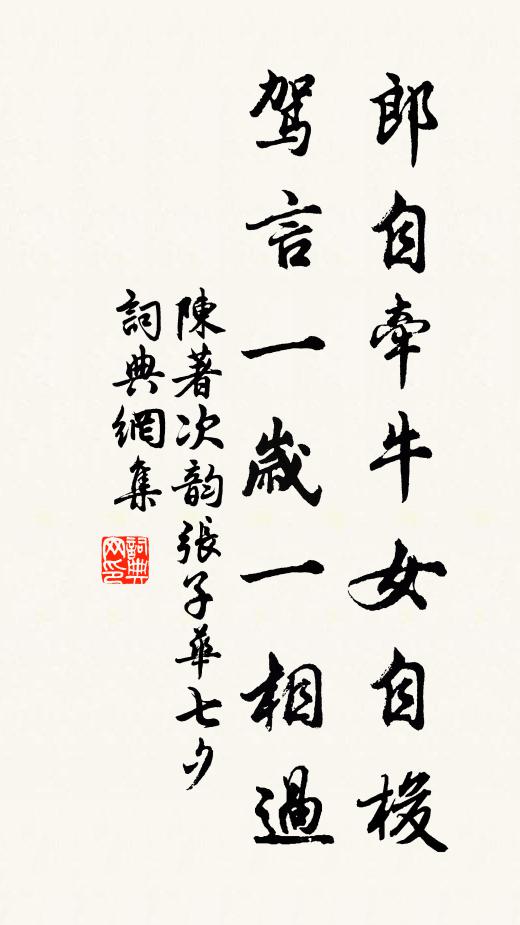 郎自牽牛女自梭
駕言一歲一相過
陳著次韵張子華七夕
詞典網集
詞典網印